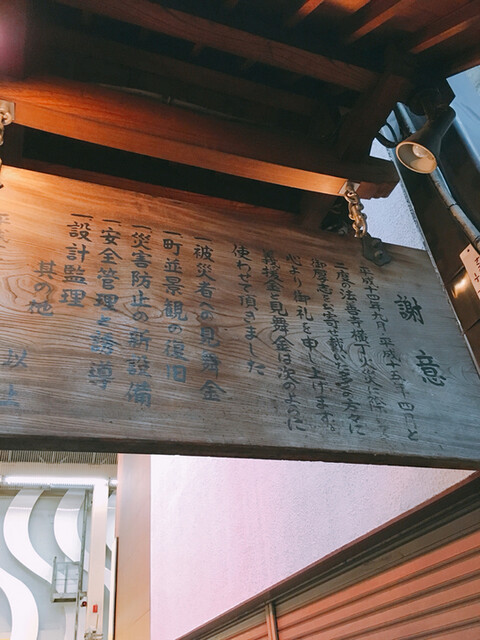 謝意
平成十四年九月、平成十五年四月と
二度の法善寺横丁火災に際し
御厚志をお寄せ戴いた多くの方々に
心より御礼を申し上げます。
義援金と見舞金は次のように
使わせて頂きました。
一被災者への見舞金
一町並景観の復旧
一災害防止の新設備
一安全管理と誘導
一設計監理
其の他
以上
平成